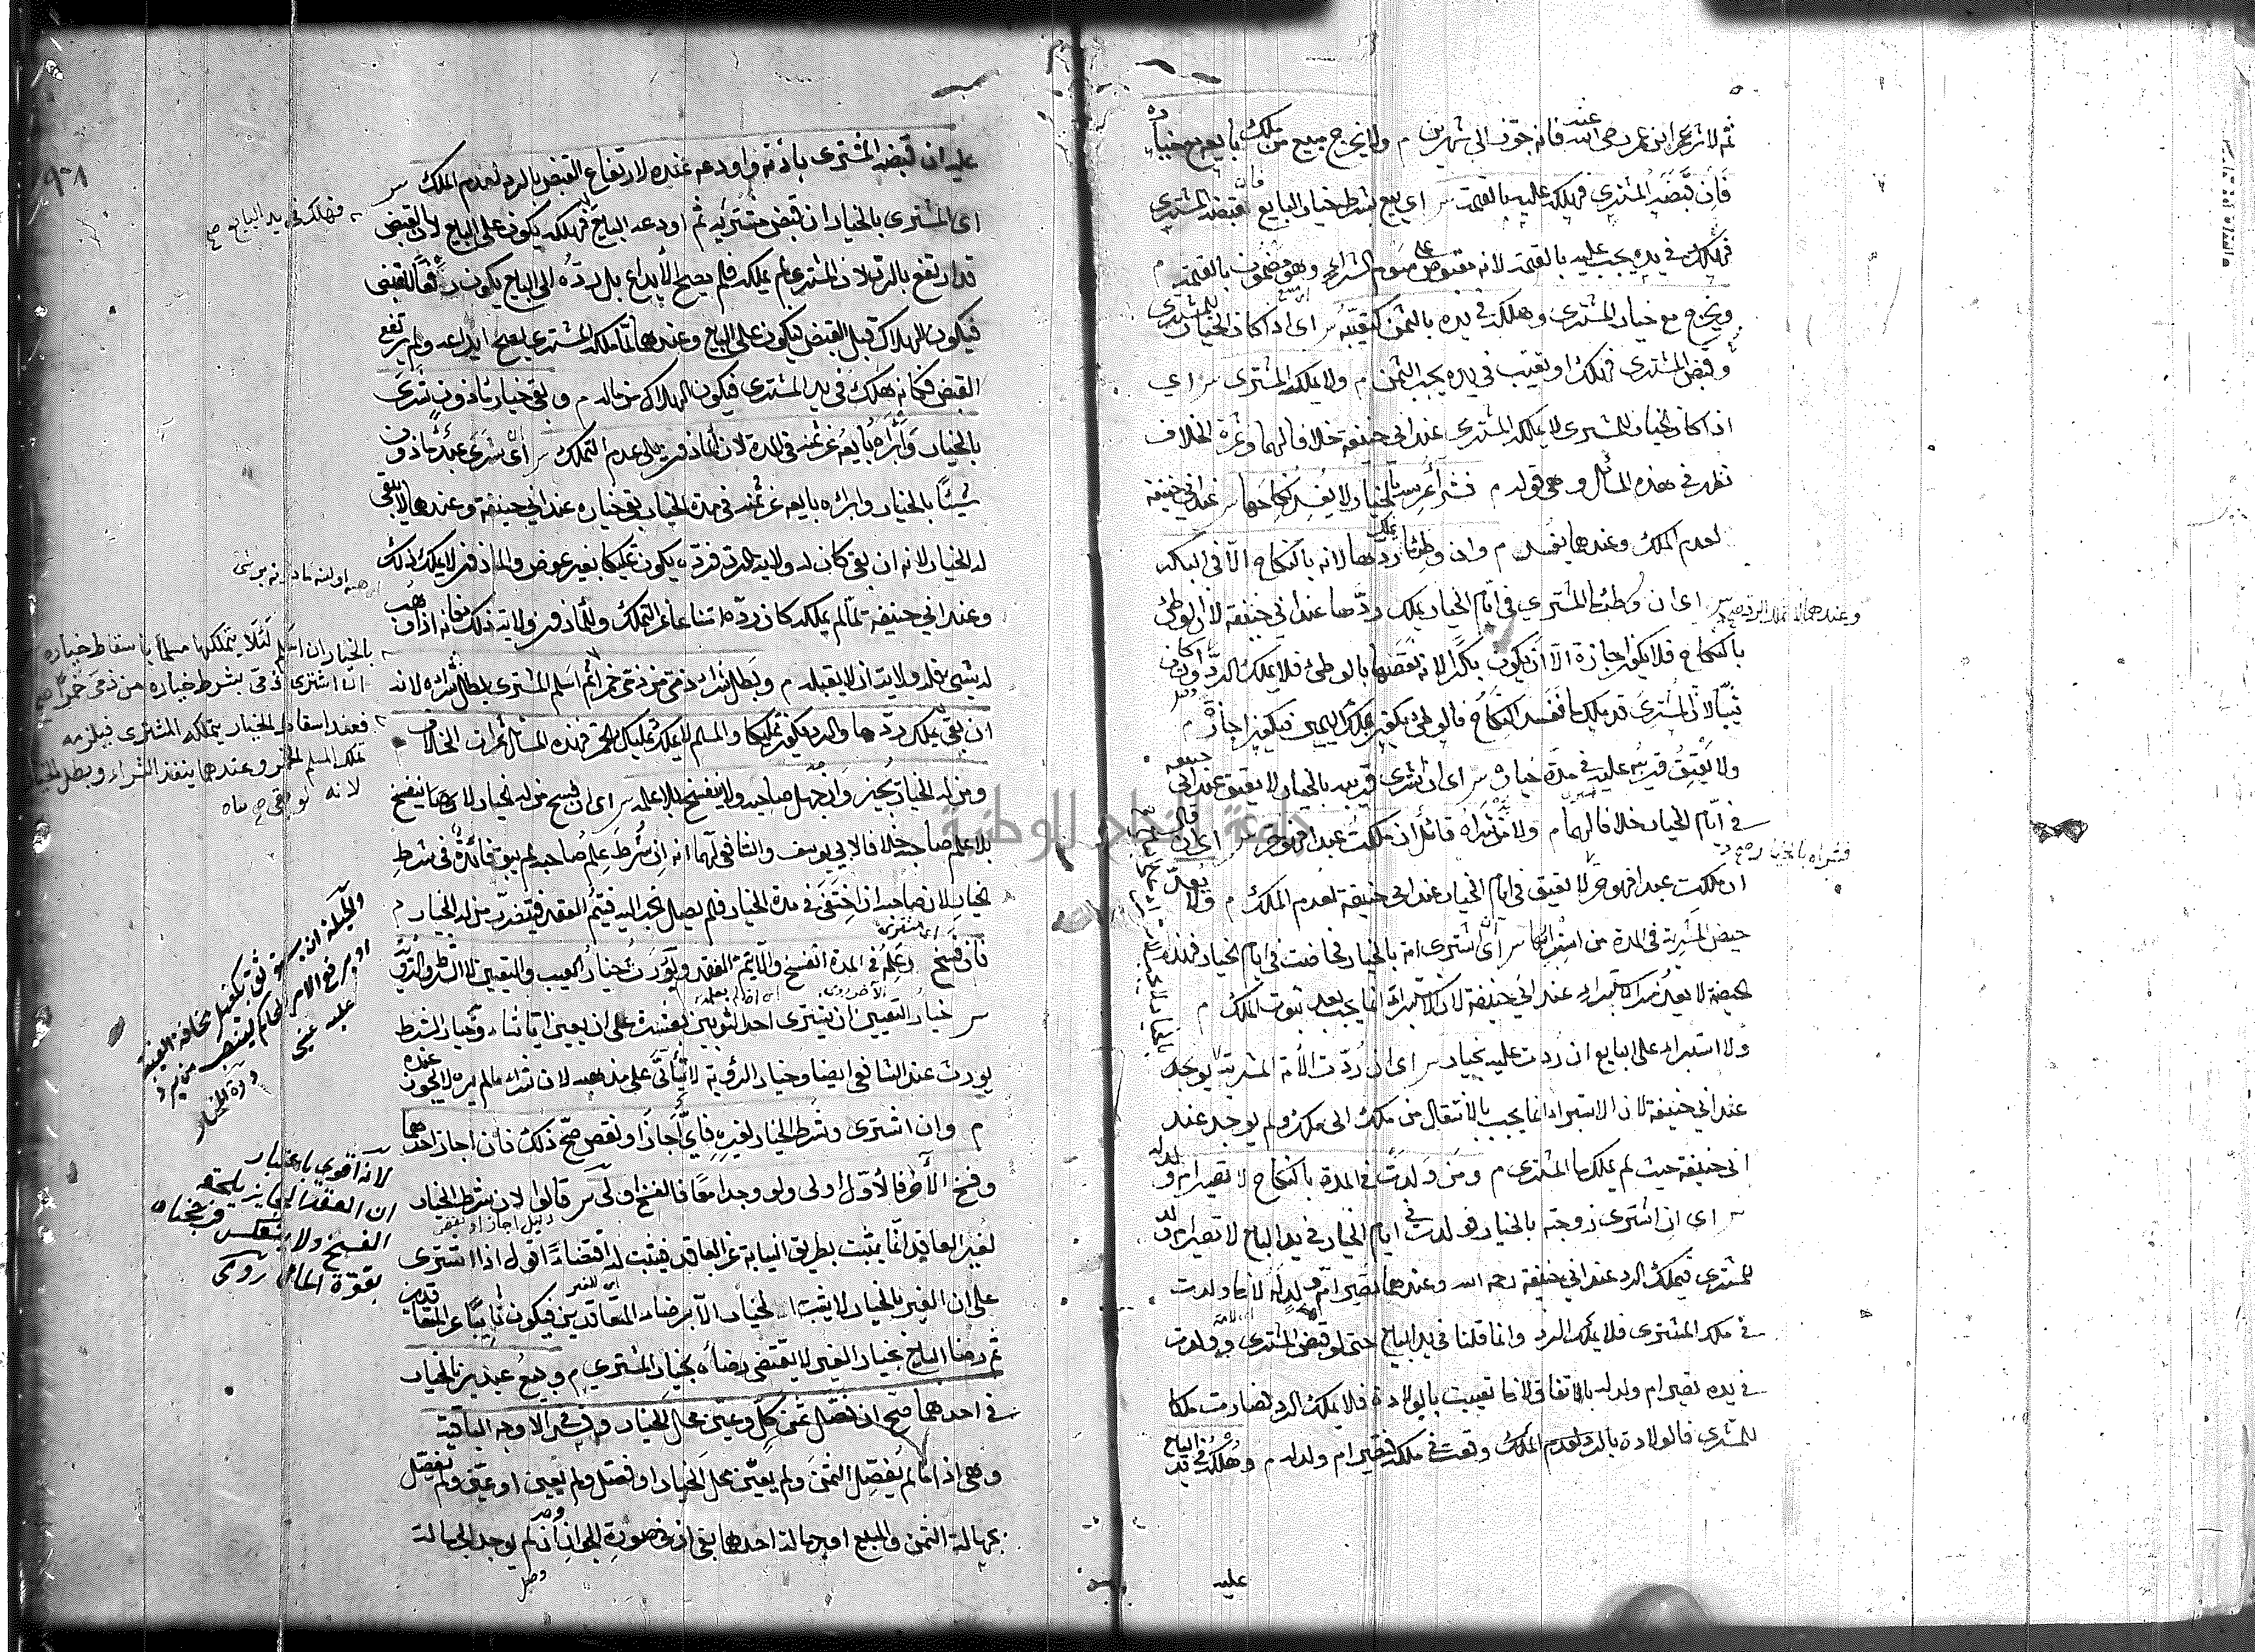 ثم لاثر عمر ابن عمر رضي الله عنه فانه جوز الى شهرين م ولا يخرج مبيع من ملك بايعه مع خياره
فان قبضه المشتري فهلكه عليه بالقيمة س اي بيع بشرط خيار البايع فان قبضه المشتري
فهلك في يده يجب عليه بالقيمة لانه مقبوض على سوم الشراء وهو مضمون بالقيمة م
ويخرج مع خيار المشتري وهلكه في يده بالثمن كتعيبه س اي اذا كان الخيار للمشتري
وقبض المشتري فهلك او تعيب في يده يجب الثمن م ولا يملكه المشتري س اي
اذا كان الخيار للمشتري لا يملكه المشتري عند ابي حنيفة خلافا لهما وثمرة الخلاف
تظهر في هذه المسائل وهي قوله م فشراء عرسه بالخيار لا يفسد نكاحها س عند ابي حنيفة
لعدم الملك وعندهما يفسد م وان وطئها ردها لانه بالنكاح الا في البكر
س اي ان وطئها المشتري في ايام الخيار يملك ردها عند ابي حنيفة لان الوطئ
بالنكاح فلا يكون اجازة الا ان يكون بكرا لانه نقصها بالوطئ فلا يملك الرد وان كان
ثيبا لان المشتري قد ملكها ففسد النكاح فالوطئ يكون بملك اليمين فيكون اجازة م
ولا يعتق قريبه عليه في مدة خياره س اي ان اشترى قريبه بالخيار لا يعتق عند ابي حنيفة
في ايام الخيار خلافا لهما م ولا من شراه قائلا ان ملكت عبدا فهو حر س اي ان قال
ان ملكت عبدا فهو حر لا يعتق في ايام الخيار عند ابي حنيفة لعدم الملك م ولا يعد
حيض المشرية في المدة من استبرائها س اي اشترى امة بالخيار فحاضت في ايام الخيار فهذه
الحيضة لا يعد من الاستبراء عند ابي حنيفة لان الاستبراء انما يجب بعد ثبوت الملك م
ولا استبراء على البايع ان ردت عليه بخيار س اي ان ردت الامة المشرية لا يوجد
عند ابي حنيفة لان الاستبراء انما يجب بالانتقال من ملك الى ملك ولم يوجد عند
ابي حنيفة حيث لم يملكها المشتري م ومن ولدت في المدة بالنكاح لا تصير ام ولد له
س اي ان اشترى زوجته بالخيار فولدت في ايام الخيار في يد البايع لا تصير ام ولد
للمشتري فيملك الرد عند ابي حنيفة رحمه الله وعندهما تصير ام ولد له لانها ولدت
في ملك المشتري فلا يملك الرد وانما قلنا في يد البايع حتى لو قبض المشتري وولدت
في يده تصير ام ولد له بالاتفاق لانها تعيبت بالولادة فلا يملك الرد فصارت ملكا
للمشتري فالولادة وقعت في ملكه فتصير ام ولد له م وهلكه في يد البايع
عليه
وعندهما لا يملك الرد
فشراه بالخيار
عليه ان قبضه المشتري باذنه واودعه عنده لارتفاع القبض بالرد لعدم الملك س
اي المشتري بالخيار ان قبض مشتريه ثم اودعه البايع فهلكه يكون على البايع لان القبض
قد ارتفع بالرد لان المشتري لم يملكه فلم يصح الايداع بل رده الى البايع يكون رفعا للقبض
فيكون الهلاك قبل القبض فيكون على البايع وعندهما لما ملكه المشتري يصح ايداعه ولم يرتفع
القبض فكانه هلك في يد المشتري فيكون الهلاك من ماله م وبقي خيار ماذون شرى
بالخيار وابراه بايعه عن ثمنه في المدة لان الماذون يلي عدم التملك س اي شرى عبد ماذون
شيئا بالخيار وابراه بايعه عن ثمنه في مدة الخيار بقي خياره عند ابي حنيفة وعندهما لا يبقى
له الخيار لانه ان بقي كان له ولاية الرد فرده يكون تمليكا بغير عوض والماذون لا يملك ذلك
وعند ابي حنيفة لما لم يملكه كان رده امتناعا عن التملك وللماذون ولاية ذلك فانه اذا وهب
له شيئ فله ولاية ان لا يقبله م وبطل شراء ذمي من ذمي خمرا ثم اسلم المشتري بطل شراه لانه
ان بقي يملك ردها والرد يكون تمليكا والمسلم لا يملك تمليك الخمر فهذه المسائل ثمرات الخلاف
ومن له الخيار يجيز وان جهل صاحبه ولا يفسخ بلا علمه س اي ان فسخ من له الخيار لا يفسخ
بلا علم صاحبه خلافا لابي يوسف والشافعي لهما انه ان شرط علم صاحبه لم يبق فائدة في شرط
الخيار لان صاحبه ان اختفى في مدة الخيار فلم يصل الخبر اليه فيتم العقد فيتضرر من له الخيار م
فان فسخ وعلمه في المدة انفسخ والا يتم العقد ويورث خيار العيب والتعيين لا الشرط والرؤية
س خيار التعيين ان يشتري احد الثوبين بعشرة على ان يعين ايا شاء وخيار الشرط
يورث عند الشافعي ايضا وخيار الرؤية لا يتاتى على مذهبه لان شراء ما لم يره لا يجوز عنده
م وان اشترى وشرط الخيار لغيره فاي اجاز او نقض صح ذلك فان اجاز احدهما
وفسخ الاخر فالاول اولى ولو وجدا معا فالفسخ اولى س قالوا لان شرط الخيار
لغير العاقد انما يثبت بطريق النيابة عن العاقد فيثبت له اقتضاء اقول اذا اشترى
على ان الغير بالخيار لا يثبت الخيار الا برضاء المتعاقدين فيكون نائبا عن المتعاقدين
ثم رضا البايع بخيار الغير لا يقتضي رضاه بخيار المشتري م وبيع عبدين بالخيار
في احدهما صح ان فصل ثمن كل وعين محل الخيار وفسد في الاوجه الباقية
وهي اذا ما لم يفصل الثمن ولم يعين محل الخيار او فصل ولم يعين او عين ولم يفصل
لجهالة الثمن والمبيع او جهالة احدهما بقي ان في صورة الجواز ان لم يوجد الجهالة
فهلك في يد البايع صح
بالخيار ان اسلم لئلا يتملكها مسلما باسقاط خياره
اي اشترى ذمي بشرط خياره من ذمي خمرا
فعند اسقاط الخيار يتملكه المشتري فيلزمه
تملك المسلم الخمر وعندهما ينفذ الشراء وبطل الخيار
لانه لو بقي
لانه اقوى باعتبار
ان العقد الجايز يلحقه
الفسخ ولا ينعكس فرجحناه